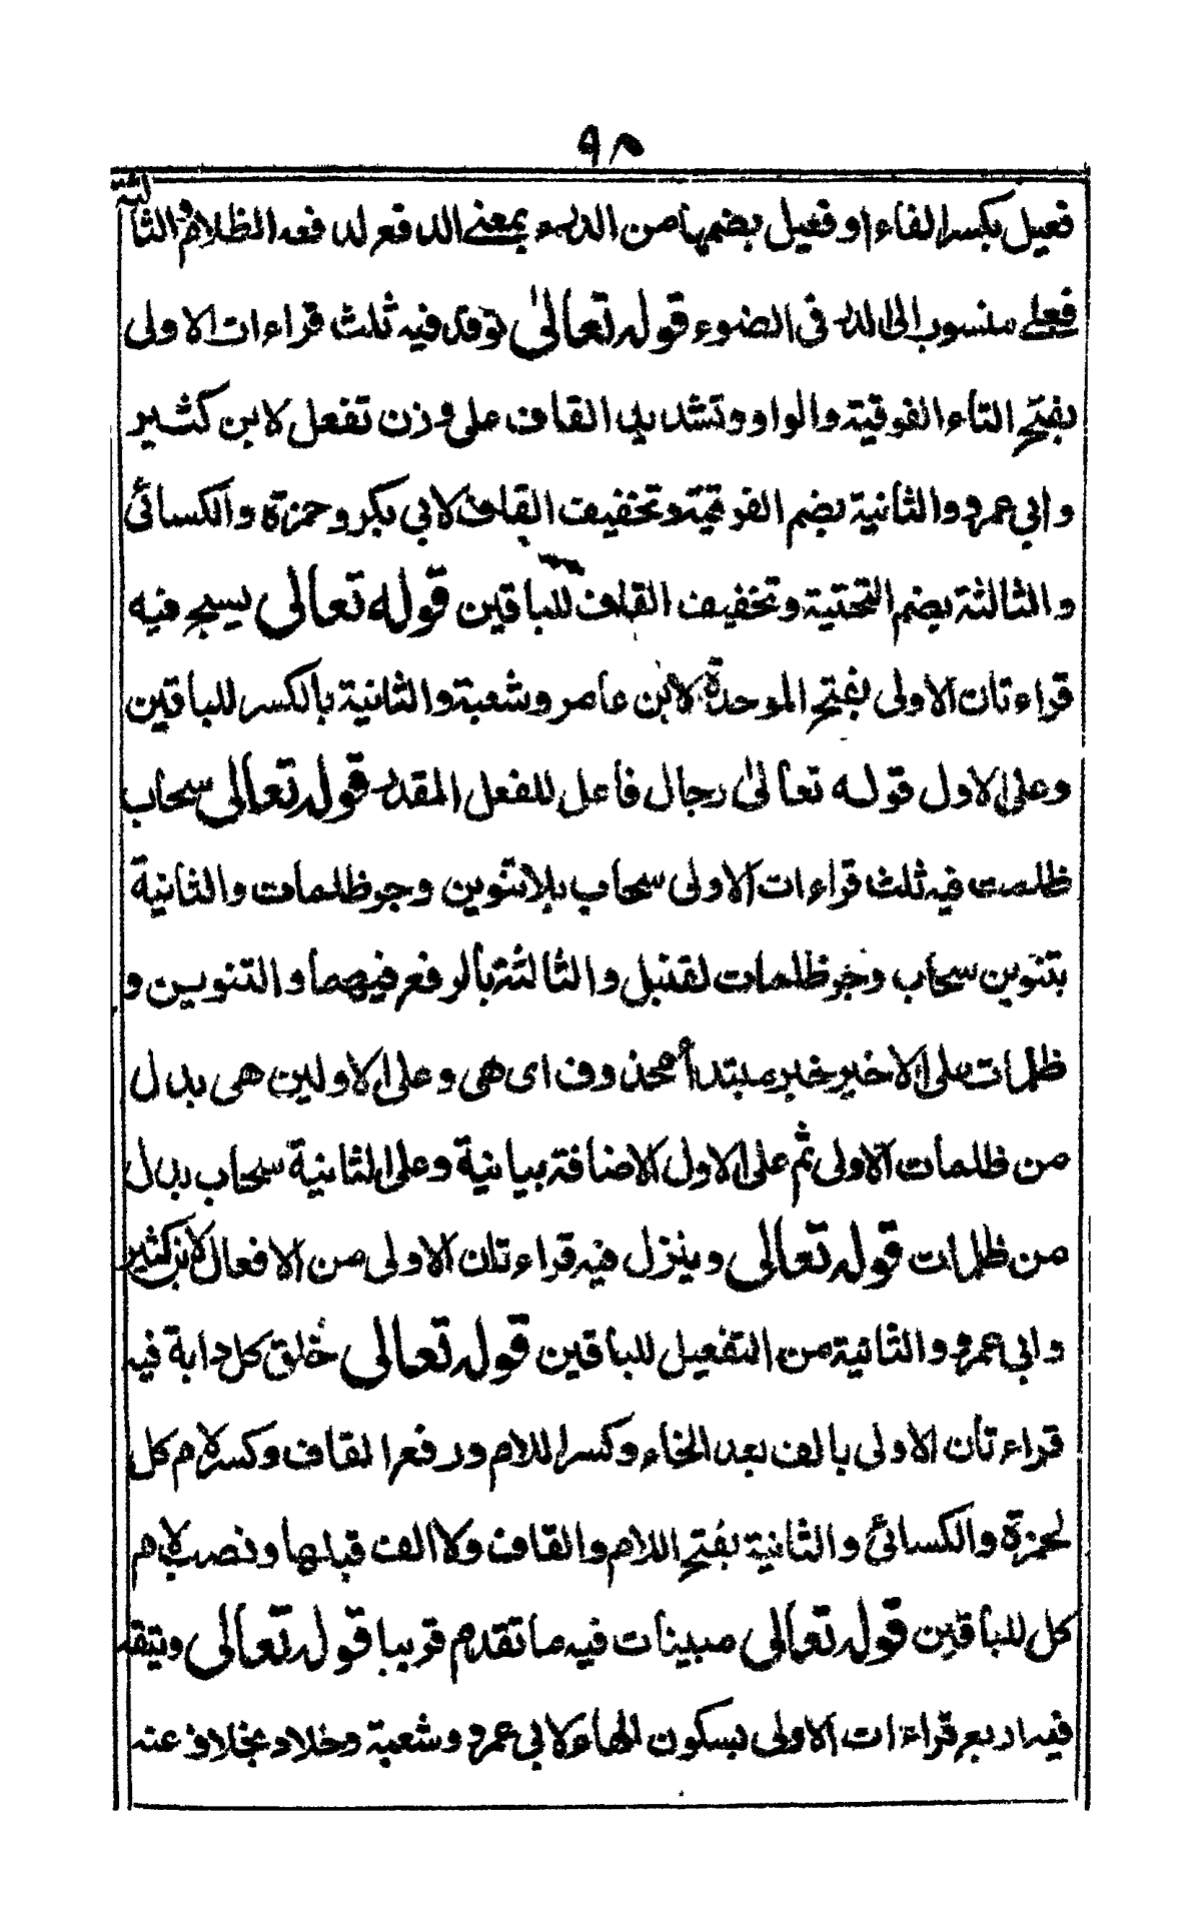 ٩٨
فعيل بكسر الفاء او فعيل بضمها من الدرء بمعنى الدفع لدفعه الظلام والثالثة
فعلى منسوب الى الدر فى الضوء قوله تعالىٰ توقد فيه ثلث قراءات الاولى
بفتح التاء الفوقية والواو وتشديد القاف على وزن تفعل لابن كثير
وابى عمرو والثانية بضم الفوقية وتخفيف القاف لابى بكر وحمزة والكسائى
والثالثة بضم التحتية وتخفيف القاف للباقين قوله تعالى يسبح فيه
قراءتان الاولى بفتح الموحدة لابن عامر وشعبة والثانية بالكسر للباقين
وعلى الاول قوله تعالىٰ رجال فاعل للفعل المقدر قوله تعالى سحاب
ظلمت فيه ثلث قراءات الاولى سحاب بلا تنوين وجر ظلمات والثانية
بتنوين سحاب وجر ظلمات لقنبل والثالثة بالرفع فيهما والتنوين و
ظلمات على الاخير خبر مبتدأ محذوف اى هى وعلى الاولين هى بدل
من ظلمات الاولى ثم على الاول الاضافة بيانية وعلى الثانية سحاب بدل
من ظلمات قوله تعالى وينزل فيه قراءتان الاولى من الافعال لابن كثير
وابى عمرو والثانية من التفعيل للباقين قوله تعالى خلق كل دابة فيه
قراءتان الاولى بالف بعد الخاء وكسر اللام ورفع القاف وكسر لام كل
لحمزة والكسائى والثانية بفتح اللام والقاف ولا الف قبلها ونصب لام
كل للباقين قوله تعالى مبينات فيه ما تقدم قريبا قوله تعالى ويتقه
فيه اربع قراءات الاولى بسكون الهاء لابى عمرو وشعبة وخلاد بخلاف عنه